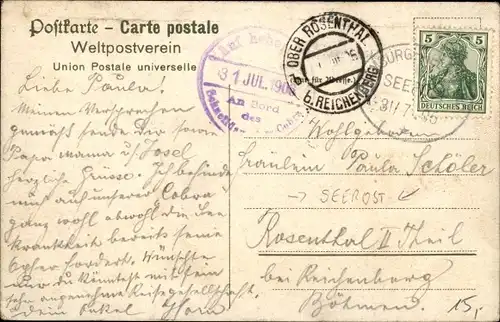 Postkarte – Carte postale
Weltpostverein
Union Postale universelle
Auf hoher
31 JUL. 190
An Bord
des
Cobra
OBER ROSENTHAL
b. REICHENBERG
SEE
5 5
DEUTSCHES REICH
Liebe Paula!
Meinem Versprechen
gemäss sende Dir sowie
Papa Mama u. Josef
herzliche Grüsse. Ich befinde
mich auf unserer Cobra
ganz wohl obwohl die See
krankheit bereits seine
Opfer fordert. Wünschte
nur Du könntest mit sein
sehr angenehme Reisegesellschaft.
dein Onkel
Wohlgeboren
Fraulein Paula Schöler
→ SEEPOST ←
Rosenthal II Theil
bei Reichenberg
Böhmen.
15,-